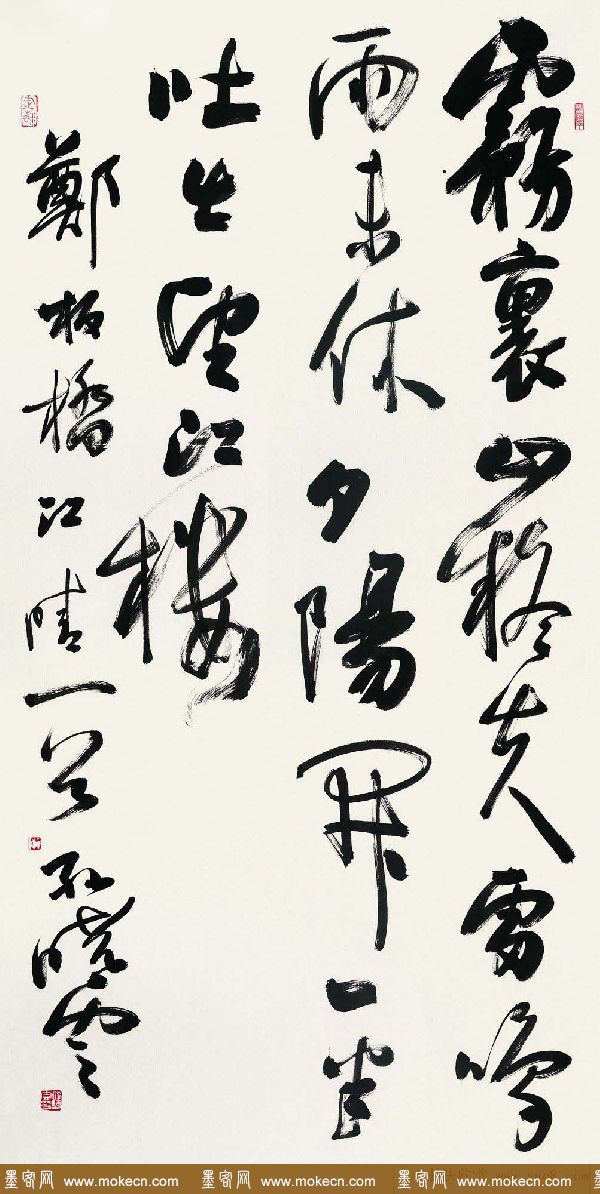 霧裹山疑失雷鳴
雨未休夕陽開一半
吐出望江樓
鄭板橋江晴一首 孫曉雲
墨客网 www.mokecn.com 墨客网 www.mokecn.com 墨客网 www.mokecn.com